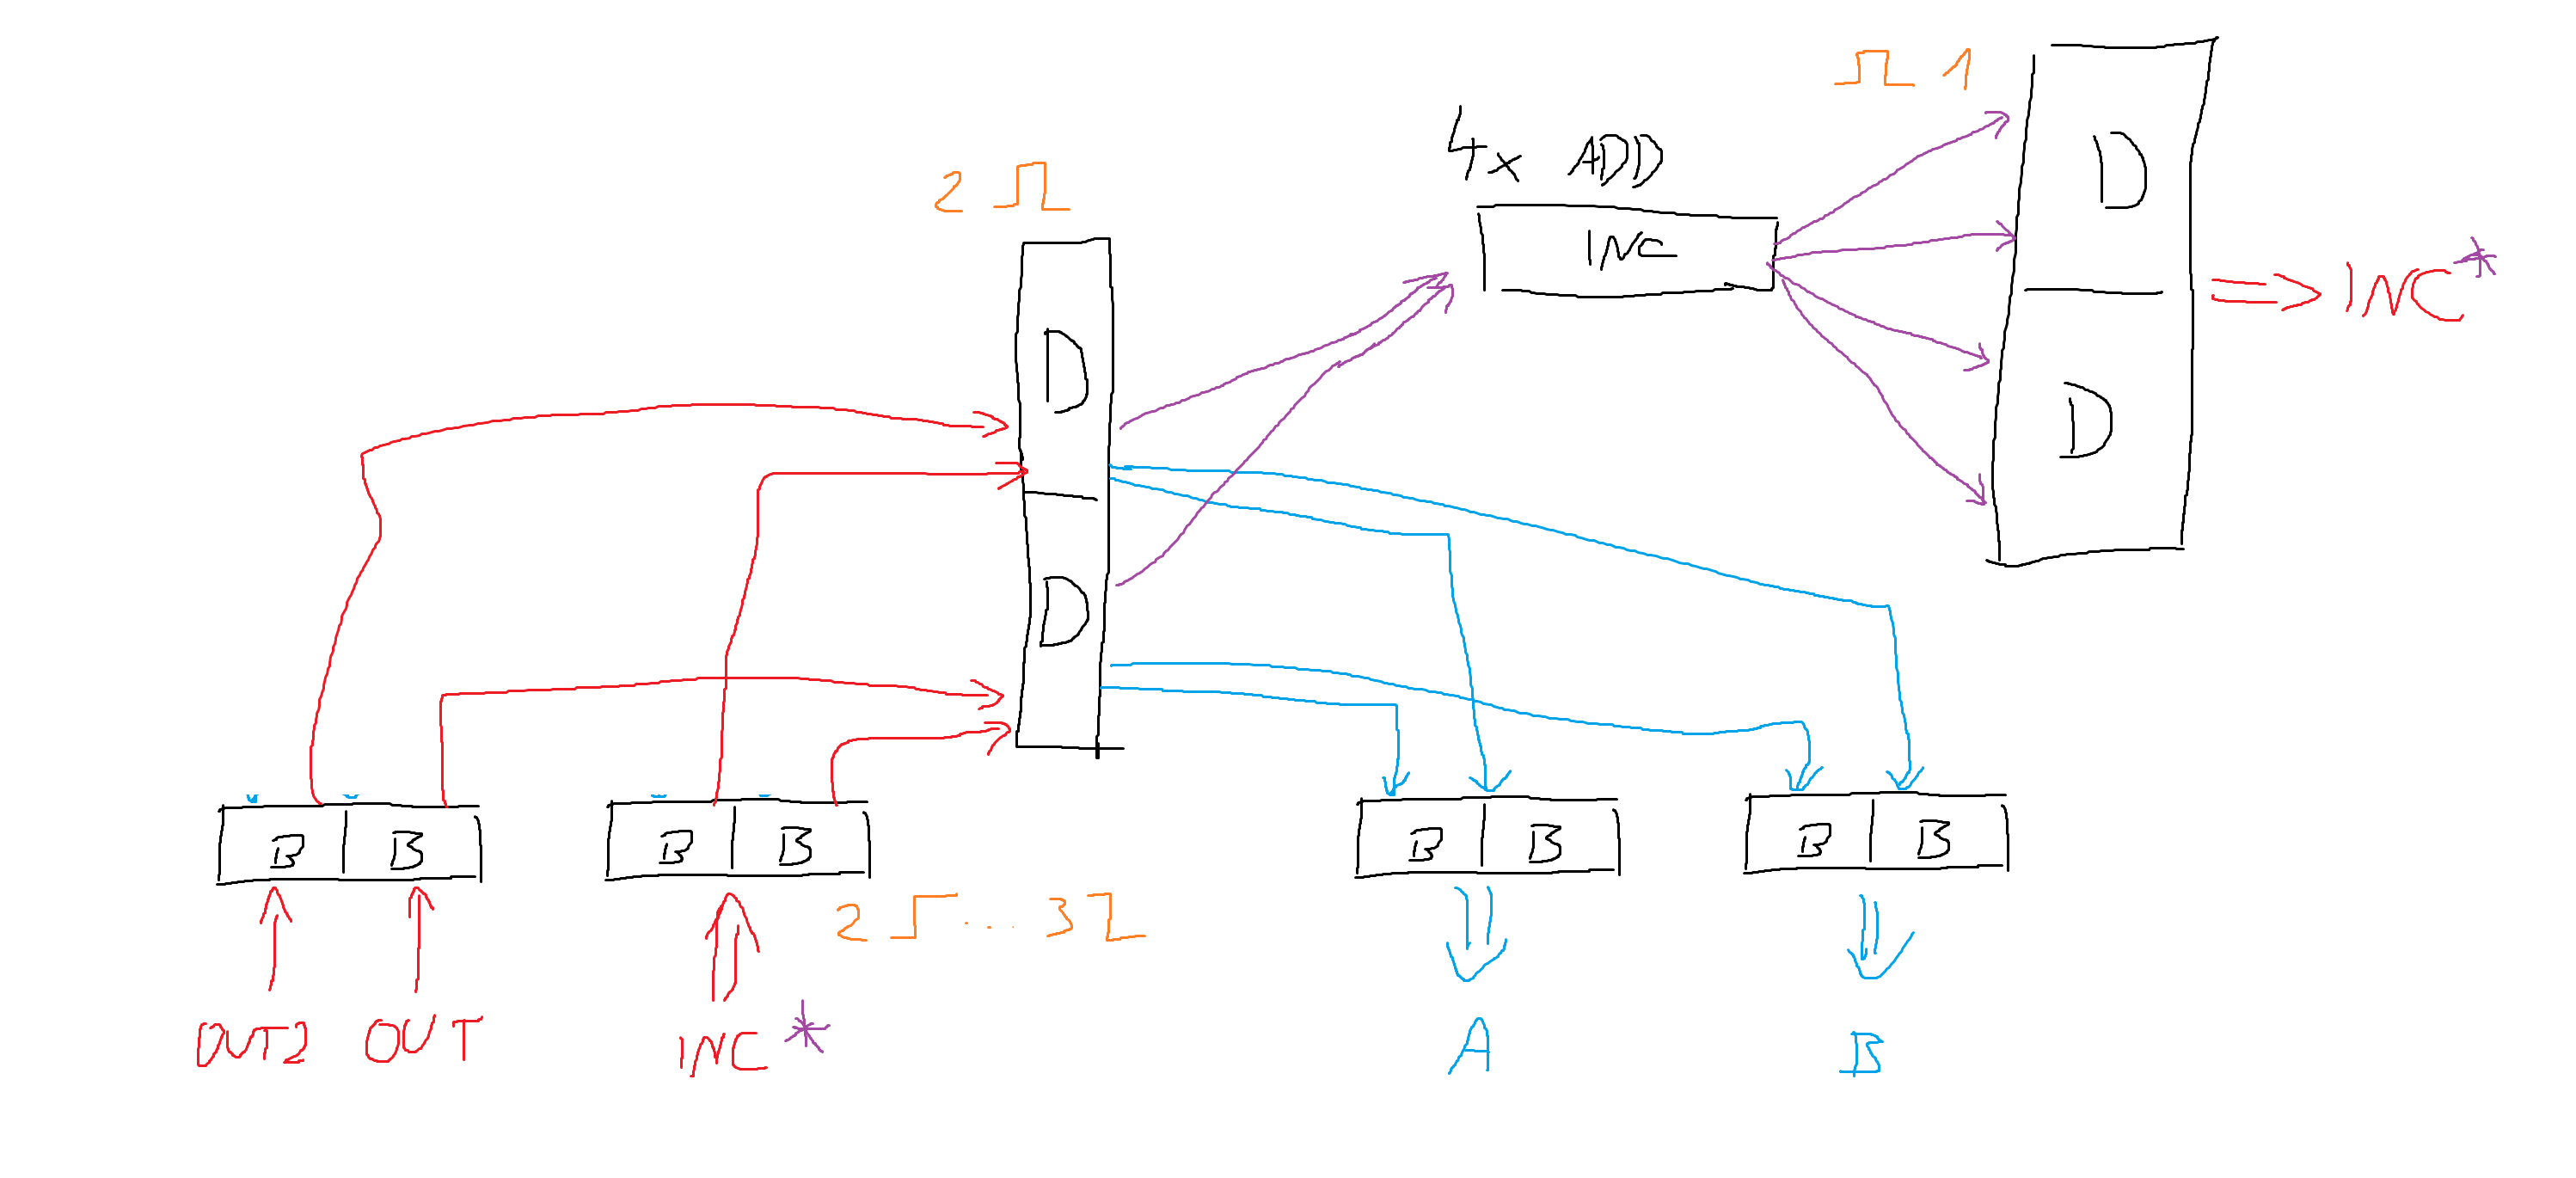 1
4x ADD
D
2
INC
INC*
D
D
D
B B
B B
B B
B B
2 ... 3
OUT2 OUT
INC *
A
B